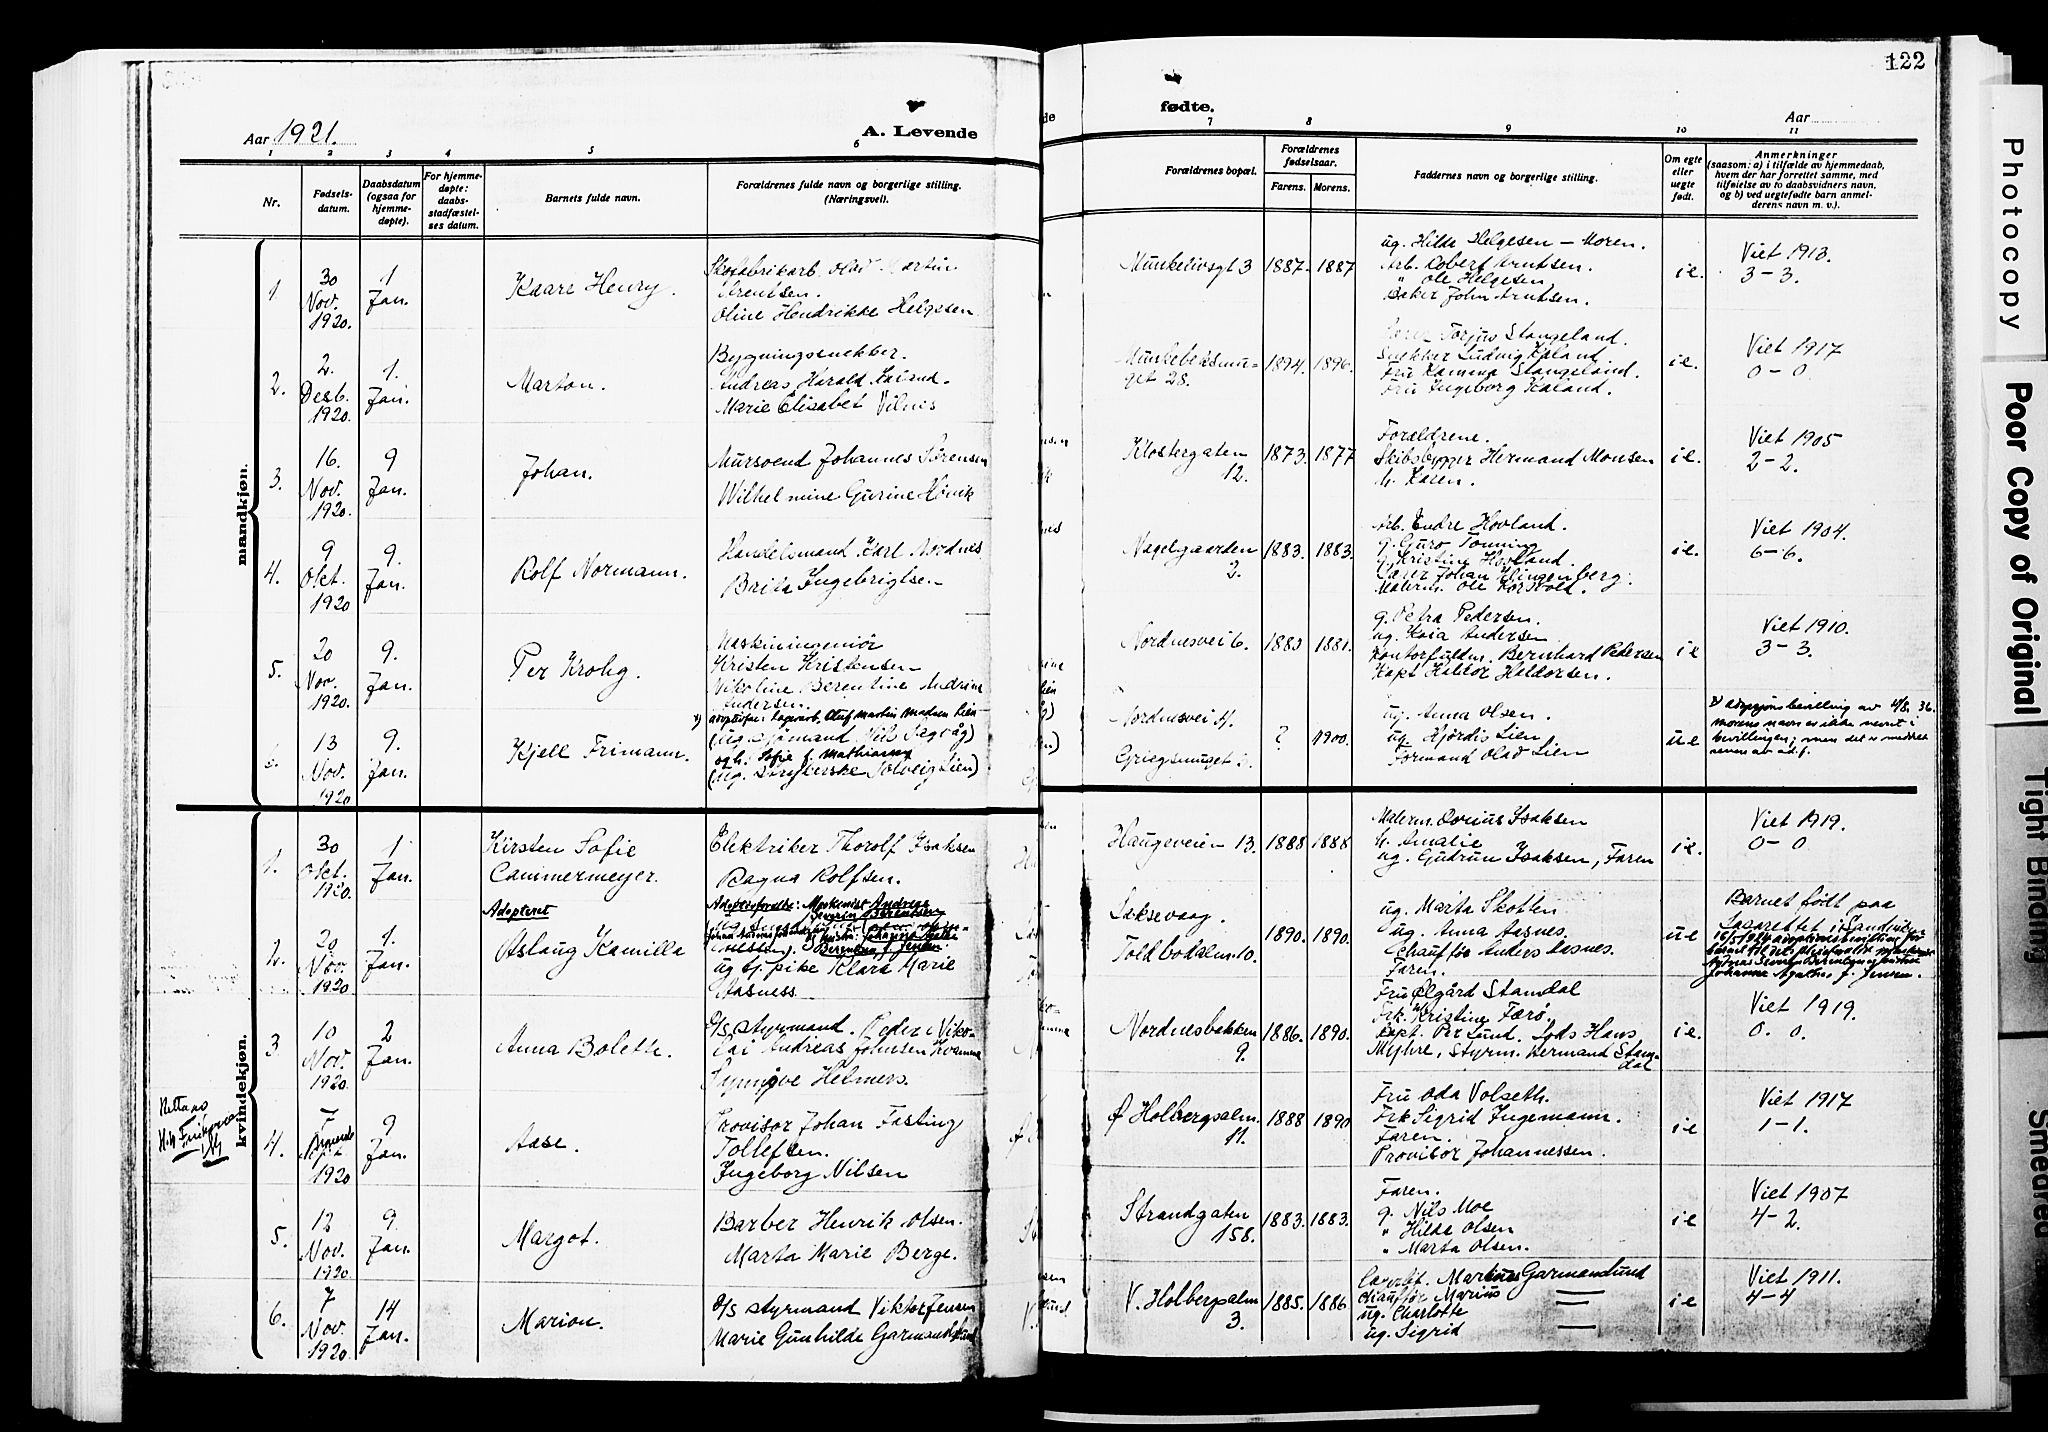 122
Aar 1921.
A. Levende
fødte.
Aar
1
2
3
4
5
6
7
8
9
10
11
Nr.
Fødsels-
datum.
Daabsdatum
(ogsaa for
hjemme-
døpte).
For hjemme-
døpte:
daabs-
stadfæstel-
ses datum.
Barnets fulde navn.
Forældrenes fulde navn og borgerlige stilling.
(Næringsvei).
Forældrenes bopæl.
Forældrenes
fødselsaar.
Farens.
Morens.
Faddernes navn og borgerlige stilling.
Om egte
eller
uegte
født.
Anmerkninger
(saasom: a) i tilfælde av hjemmedaab,
hvem der har forrettet samme, med
tilføielse av to daabsvidners navn,
og b) ved uegtefødte barn anmel-
derens navn m. v.).
mandkjøn.
1
30
Nov.
1920.
1
Jan.
Kaare Henry.
Skofabrikarb. Olav Martin
Arentsen.
Oline Hendrikke Helgesen.
Munkelivsgt 3
1887.
1887
ug. Hilda Helgesen - Moren.
Arb. Robert Arntsen.
" Ole Helgesen
Baker John Arntsen.
ie.
Viet 1913.
3-3.
2.
2.
Desb.
1920.
1.
Jan.
Marton.
Bygningssnekker.
Andreas Harald Kaland.
Marie Elisabet Vilnes
Munkebeksmu-
get 28.
1894.
1896.
Torjus Stangeland.
Snekker Ludvig Kaland
Fru Kamma Stangeland.
Fru Ingeborg Kaland.
ie.
Viet 1917
0-0
3.
16.
Nov.
1920.
9
Jan.
Johan.
Mursvend Johannes Sørensen
Wilhelmine Gurine Hövik
Klostergaten
12.
1873.
1877
Forældrene.
Skibsbygger Hermand Monsen
h. Karen.
ie.
Viet 1905
2-2.
4.
9
Okt.
1920
9.
Jan.
Rolf Normann.
Handelsmand Karl Nordnes
Brita Ingebrigtsen
Nagelgaarden
2.
1883.
1883.
Arb. Endre Hovland.
g. Guro Tonning
g. Kristine Hovland.
Johan Klingenberg.
Malerm. Ole Korsvold.
ie.
Viet 1904.
6-6.
5.
20
Nov.
1920.
9.
Jan.
Per Krohg.
Maskiningeniör
Kristen Kristensen
Nikoline Berentine Andrine
Andersen.
Nordnesvei 6.
1883
1881.
g. Petra Pedersen.
ug. Kaia Andersen
Kontorfuldm. Bernhard Pedersen
Kapt Haldor Haldorsen.
ie
Viet 1910.
3-3.
13
Nov.
1920
9.
Jan.
Kjell Frimann.
adoptivfar: Lagerarb. Oluf Martin Madsen Lien
(ug. sjömand Nils Sagvåg)
og h. Sofie f. Mathiassen
(ug. Solveig Lien)
Nordnesvei 4.
Griegsmuget
?
1900.
ug. Anna Olsen.
ug. Hjördis Lien.
Formand Olav Lien
ue
adopsjonsbevilling av 4/8. 36.
morens navn er ikke nevnt i
bevillingen; men det er meddelt
kvindekjøn.
1.
30
Okt.
1920.
1
Jan.
Kirsten Sofie
Cammermeyer.
Elektriker Thorolf Isaksen
Ragna Rolfsen.
Haugeveien 13.
1888
1888
Malerm. Isaksen
h. Amalie
ug. Gudrun Isaksen, Faren
ie.
Viet 1919.
0-0
2.
20
Nov.
1920
1.
Jan.
Adopteret
Aslaug Kamilla
Adoptivforeldre: Maskinist Andreas
Severin Berentsen
ug tj. pike Klara Marie
Aasness.
Laksevaag.
Toldbodalm. 10.
1890.
1890.
ug. Marta Skotten
ug. Anna Aasnes.
Chauffør Anders Aasnes.
Faren.
ue
Barnet født paa
Lasarettet i
Johanne Agathe f. Jensen.
3
10
Nov.
1920.
2
Jan.
Anna Boleth.
o/s styrmand. Peder Niko-
lai Andreas Johnsen Kvamme
Synnøve Helmers.
Nordnesbakken
9.
1886.
1890.
Fru Ølgård Stamdal
Frk. Kristine Færø,
Kapt. Per Lund. Lods Hans
Myhre, Styrm. Hermand Stam-
dal
ie.
Viet 1919.
0. 0.
4.
7
1920
9
Jan.
Aase.
Provisor Johan Fasting
Tollefsen.
Ingeborg Nilsen
Ø Holbergsalm.
11.
1888
1890
Fru Oda Volseth.
Frk Sigrid Ingemann.
Faren.
Provisor Johannessen.
ie
Viet 1917
1-1.
5.
12
Nov.
1920
9.
Jan.
Margot.
Barber Henrik Olsen.
Marta Marie Berge.
Strandgaten
158.
1883.
1883.
Faren.
g. Nils Moe
" Hilda Olsen
" Marta Olsen.
ie
Viet 1907
4-2.
6.
7
Nov.
1920.
14
Jan.
Marion.
o/s styrmand Viktor Jensen
Marie Gunhilde Garmandslund
V. Holbergsalm
3.
1885.
1886
Markus Garmandslund
Chauffør Marius
ug. Charlotte
ug. Sigrid
ie
Viet 1911.
4-4
Photocopy
Poor Copy of Original
Tight Binding
Smeared